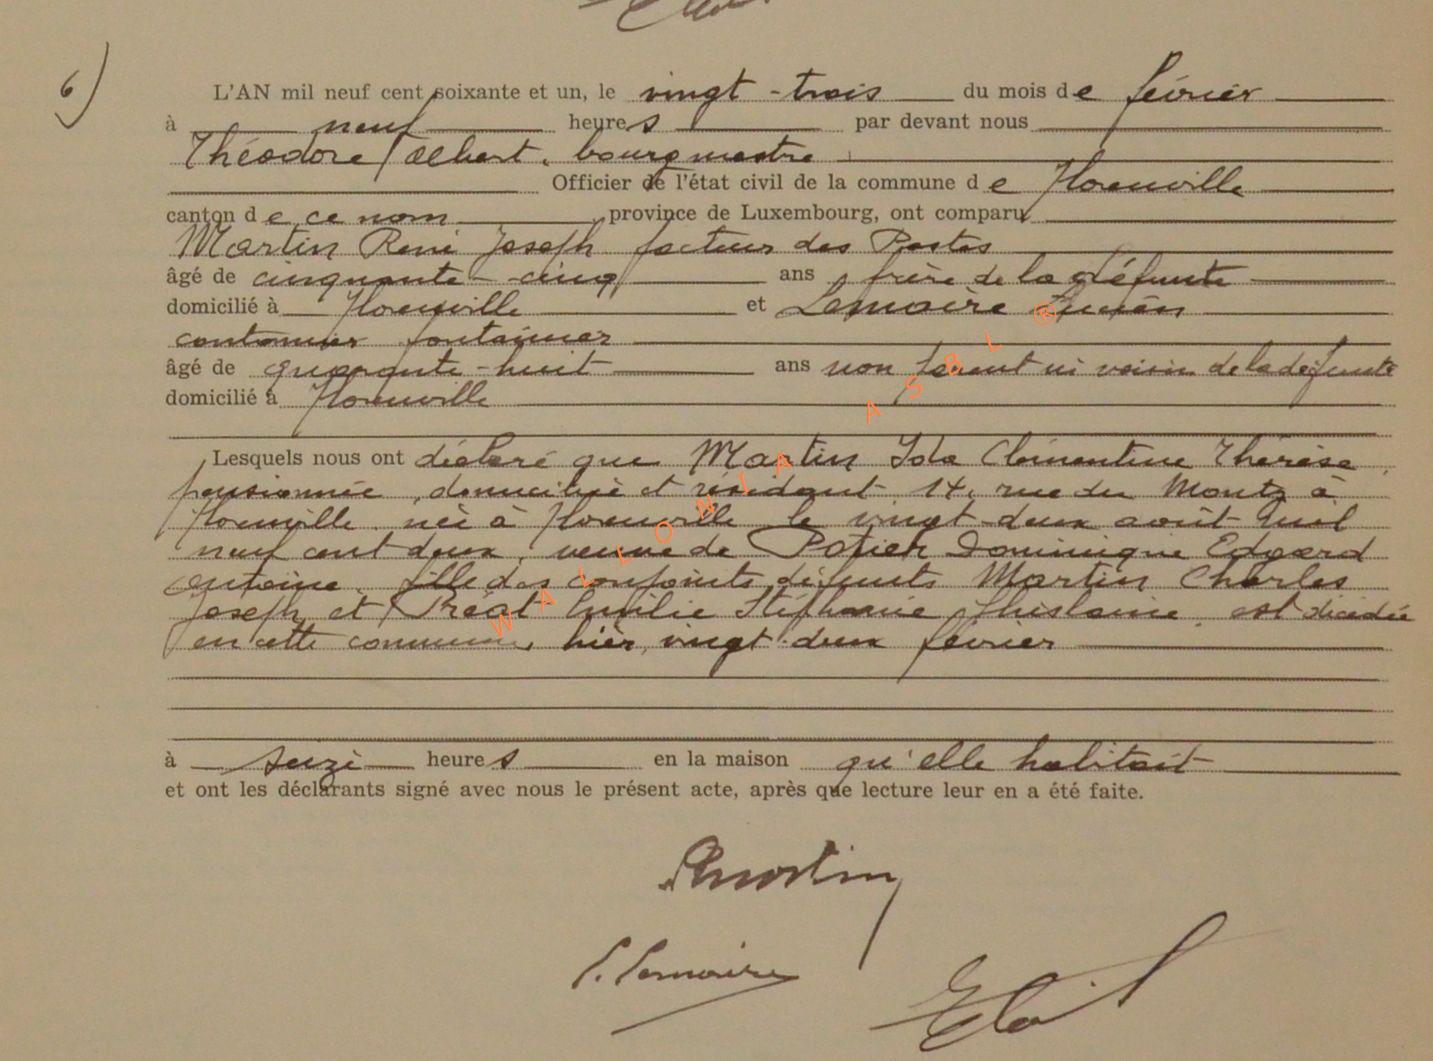 6)
L'AN mil neuf cent soixante et un, le vingt-trois du mois de février
à neuf heures par devant nous
Théodore Albert, bourgmestre
Officier de l'état civil de la commune de Florenville
canton de ce nom province de Luxembourg, ont comparu
Martin René Joseph facteur des Postes
âgé de cinquante-cinq ans frère de la défunte
domicilié à Florenville et Lemaire Lucien
cantonnier fontainier
âgé de quarante-huit ans non parent ni voisin de la défunte
domicilié à Florenville
Lesquels nous ont déclaré que Martin Ida Clémentine Thérèse,
pensionnée, domiciliée et résidant, 14, rue du à
Florenville née à Florenville le vingt-deux août mil
neuf cent deux, veuve de Potier Dominique Edgard
antoine, fille des conjoints défunts Martin Charles
Joseph et Préat Emilie Stéphanie Ghislaine, est décédée
en cette commune, hier, vingt-deux février
à seize heures en la maison qu'elle habitait
et ont les déclarants signé avec nous le présent acte, après que lecture leur en a été faite.
RMartin
L. Lemaire
WALLONIA ASBL ®